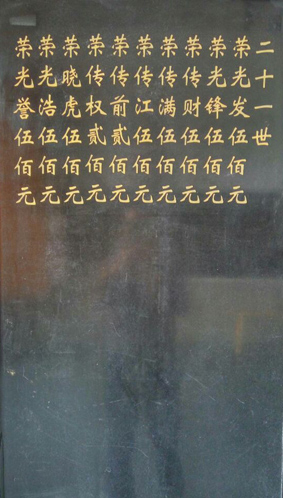 二十一世
荣光发伍佰元
荣光锋伍佰元
荣传财伍佰元
荣传满伍佰元
荣传江伍佰元
荣传前贰佰元
荣传权贰佰元
荣晓虎伍佰元
荣光浩伍佰元
荣光誉伍佰元